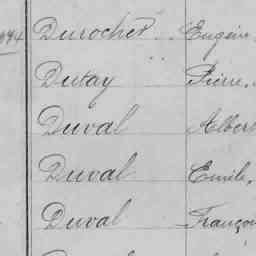 Durocher .. Eugène
Dufay " Pierre.
Duval Albert
Duval Emile.
Duval Franço